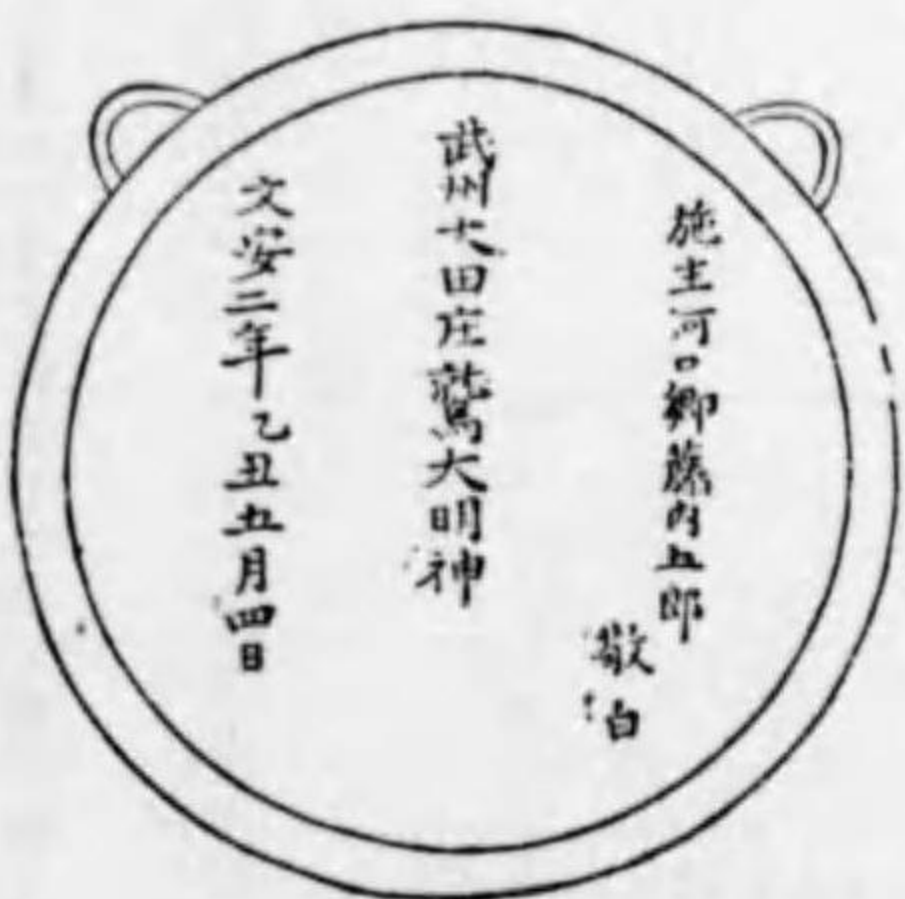 施主河口郷藤内五郎
敬白
武州大田庄鷲大明神
文安二年乙丑五月四日